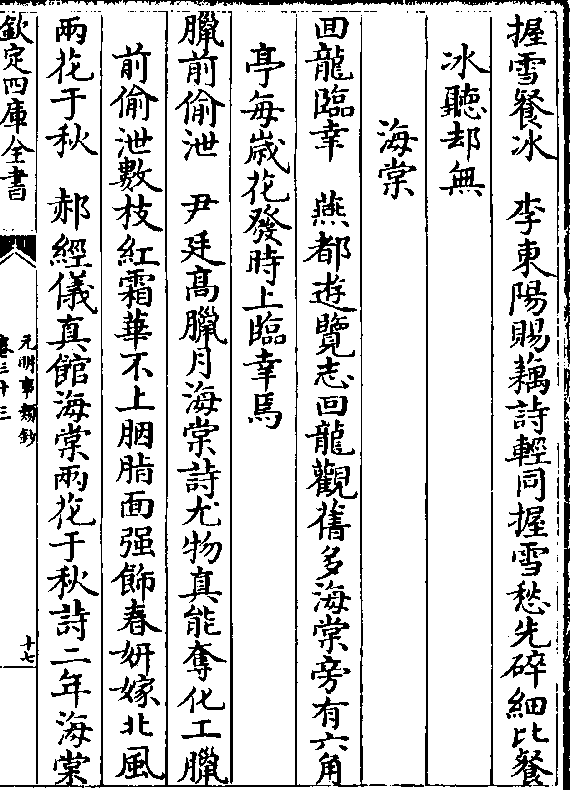 握雪餐冰　李東陽賜藕詩輕同握雪愁先碎細比餐
冰聽却無
海棠
回龍臨幸　燕都遊覽志回龍觀舊多海棠旁有六角
亭每歲花發時上臨幸焉
臘前偷泄　尹廷高臘月海棠詩尤物真能奪化工臘
前偷泄數枝紅霜華不上胭脂面强飾春妍嫁北風
兩花于秋　郝經儀真館海棠兩花于秋詩二年海棠
欽定四庫全書
元明事類鈔
卷三十三
十七